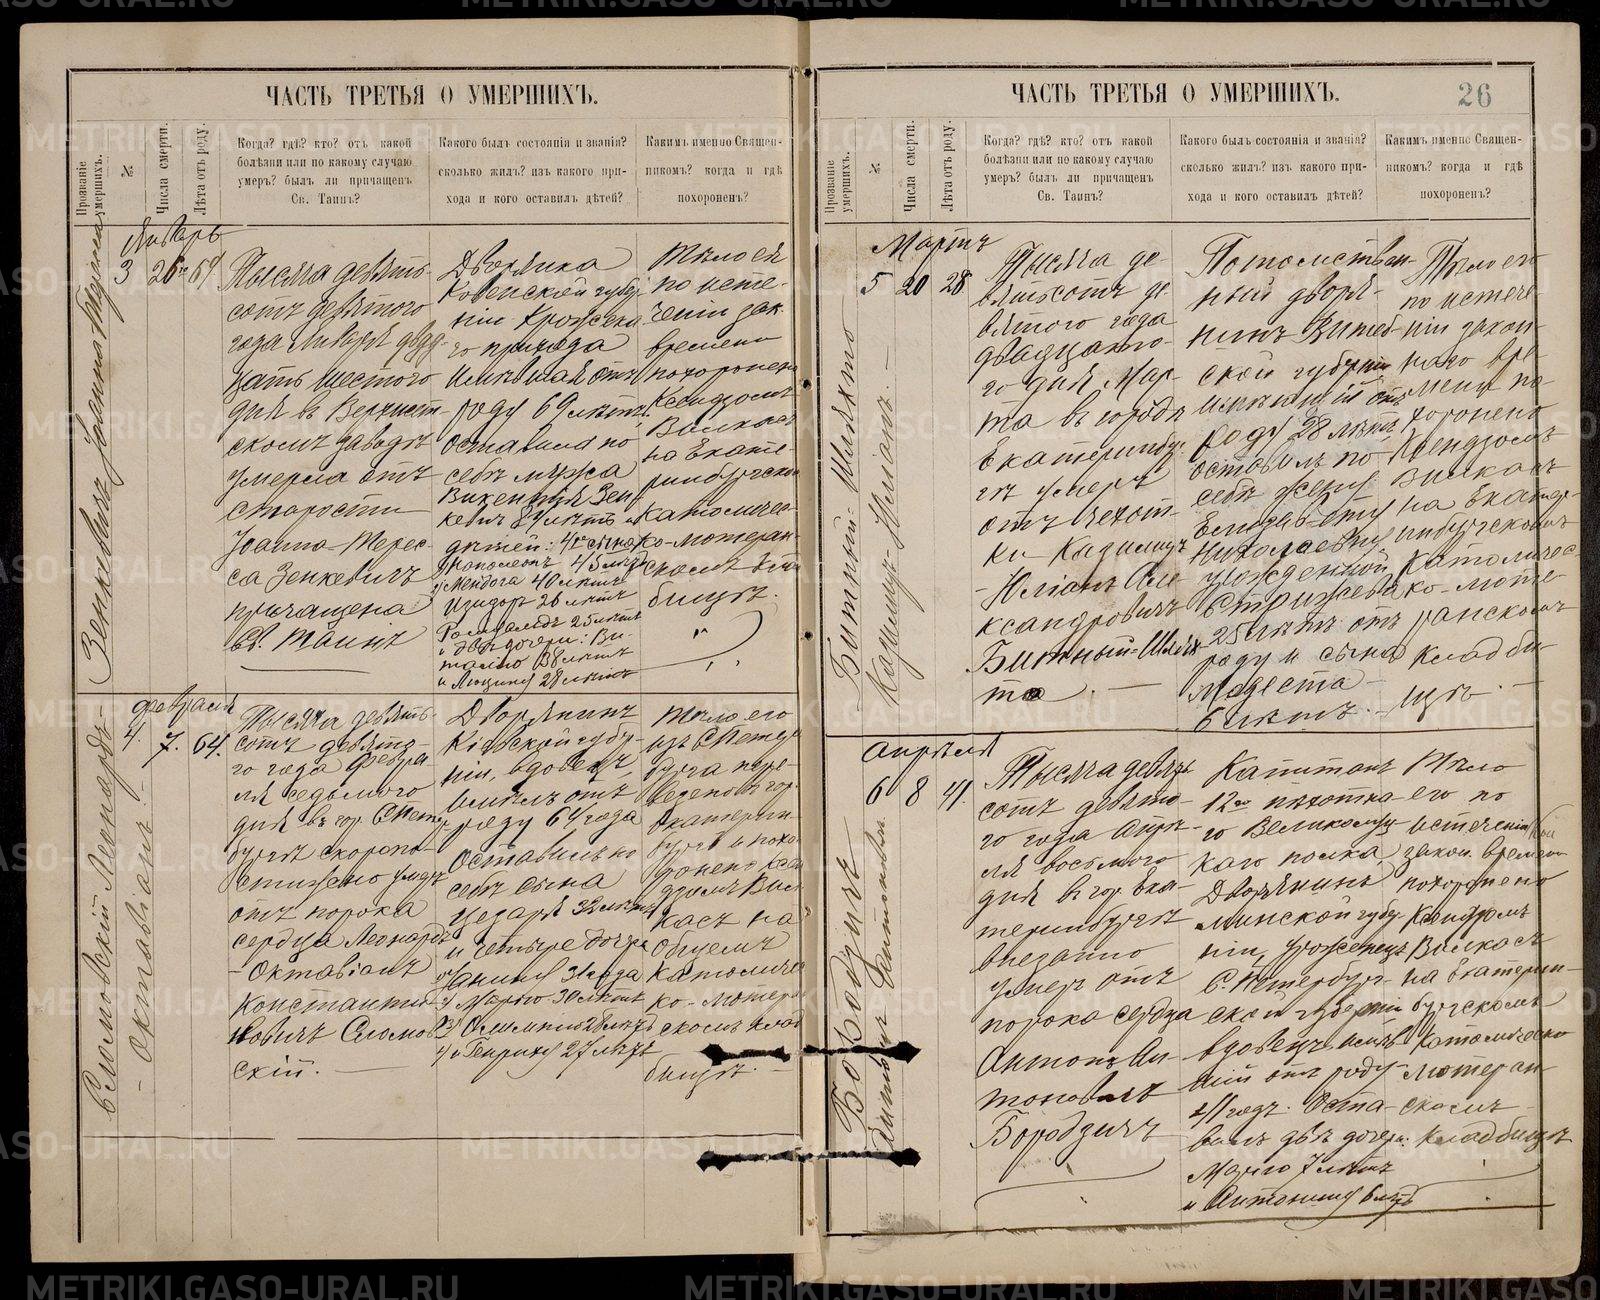 ЧАСТЬ ТРЕТЬЯ О УМЕРШИХЪ.
Прозваніе умершихъ.
№
Числа смерти.
Лѣта отъ роду.
Когда? гдѣ? кто? отъ какой
болѣзни или по какому случаю
умеръ? былъ ли причащенъ
Св. Таинъ?
Какого былъ состоянія и званія?
сколько жилъ? изъ какого при-
хода и кого оставилъ дѣтей?
Какимъ именно Священ-
никомъ? когда и гдѣ
похороненъ?
Зенкевичъ Іоанна-Тереса
Январь
3
26
69
Тысяча девять-
сотъ девятого
года Января двад-
цать шестого
дня въ Верхисет-
скомъ заводѣ
умерла отъ
старости
Іоанна-Терес-
са Зенкевичъ
причащена
Св. Таинъ
Дворянка
Ковенской губер-
ніи Крожска-
го прихода
имѣвшая отъ
роду 69 лѣтъ,
оставила по
себѣ мужа
Викентія Зен-
кевичъ
дѣтей: 4 сына
Наполеонъ 45 лѣтъ
Мендога 40 лѣтъ
Изидоръ 26 лѣтъ
Ромуальдъ 25 лѣтъ
и двѣ дочери: Ви-
талію 38 лѣтъ
и Люцину 28 лѣтъ
Тѣло ея
по исте-
ченіи зак.
времени
похоронено
Ксендзомъ
Вилкасъ
на Екате-
ринбургском
Католичес-
ко-лютеран-
скомъ клад
бищѣ.
Сломовскій Леонардъ-
- Октавіанъ -
Февраля
4.
7.
64.
Тысяча девять-
сотъ девято-
го года Февра-
ля седьмого
дня въ гор. СПетер-
бургѣ скоропо-
стижно умеръ
отъ порока
сердца Леонардъ
- Октавіанъ
Константи-
новичъ Сломов-
скій.
Дворянинъ
Кіевской губер-
ніи, вдовецъ,
имѣлъ отъ
роду 64 года
оставилъ по
себѣ сына
Цезаря 32 лѣтъ
и четыре дочери
Янину 31 года
Марію 30 лѣтъ
Олимпію 28 лѣтъ
и Генрику 27 лѣтъ
Тѣло его
изъ СПетер
бурга пере-
везено въ гор.
Екатерин-
бургъ и похо-
ронено Ксен
дзомъ Вил
касъ на
Общемъ
католичес
ко-лютеран
скомъ клад
бищѣ.
ЧАСТЬ ТРЕТЬЯ О УМЕРШИХЪ.
26
Прозваніе умершихъ.
№
Числа смерти.
Лѣта отъ роду.
Когда? гдѣ? кто? отъ какой
болѣзни или по какому случаю
умеръ? былъ ли причащенъ
Св. Таинъ?
Какого былъ состоянія и званія?
сколько жилъ? изъ какого при-
хода и кого оставилъ дѣтей?
Какимъ именно Священ-
никомъ? когда и гдѣ
похороненъ?
Битный-Шляхто
Казимиръ-Юліанъ. -
Мартъ
5
20
28
Тысяча де-
вятьсотъ де-
вятого года
двадцато-
го дня Мар-
та въ городѣ
Екатеринбур-
гѣ умеръ
отъ чахот-
ки Казимиръ
- Юліанъ Але-
ксандровичъ
Битный-Шлях
то. -
Потомствен-
ный дворя-
нинъ Витеб-
ской губерніи
имѣвшій отъ
роду 28 лѣтъ,
оставилъ по
себѣ жену
Елизавету
Николаевну
урожденную
Стрижева
25 лѣтъ отъ
роду и сына
Модеста
6 лѣтъ. -
Тѣло его
по истече-
ніи закон-
наго вре-
мени по-
хоронено
Ксендзомъ
Вилкасъ
на Екатер-
инбургскомъ
Католичес-
ко-люте-
ранскомъ
кладби-
щѣ. -
Бородзичъ
Антонъ Антоновичъ.
Апрѣля
6
8
41.
Тысяча девять
сотъ девято-
го года Апрѣ-
ля восьмого
дня въ гор. Ека-
теринбургѣ
внезапно
умеръ отъ
порока сердца
Антонъ Ан-
тоновичъ
Бородзичъ
Капитанъ
12го пѣхотна-
го Великолуц-
каго полка,
Дворянинъ
Минской губер-
ніи, уроженецъ
С.Петербург-
ской губерніи
вдовецъ, имѣв-
шій отъ роду
41 годъ. Оста-
вилъ двѣ дочери:
Марію 7 лѣтъ
и Антонину 6 лѣтъ
Тѣло
его по
истеченіи
закон. времени
похоронено
Ксендзомъ
Вилкасъ
на Екатерин-
бургскомъ
Католическо
- лютеран-
скомъ
кладбищѣ